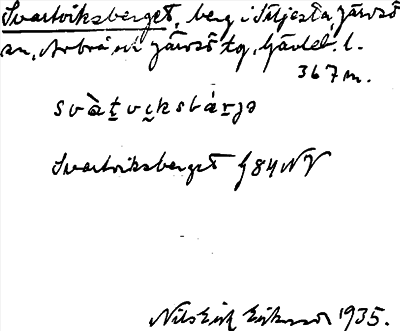 Svartviksberget, berg i Stjesta, Järvsö
sn, Arbrå och Järvsö tg, Gävleb. l.
367 m.
svàtviksbárjə
Svartviksberget G84NV
Nils Erik Eriksson 1935.